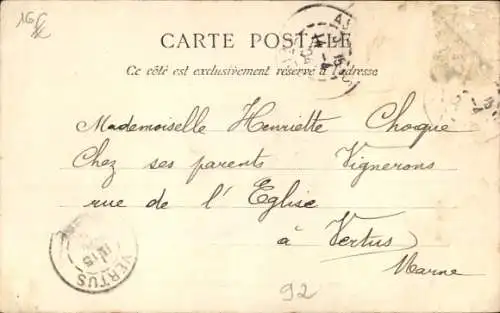 16
CARTE POSTALE
Ce côté est exclusivement réservé à l'adresse
Mademoiselle Henriette Choque
Chez ses parents Vignerons
rue de l'Eglise
à Vertus
Marne
VERTUS
92